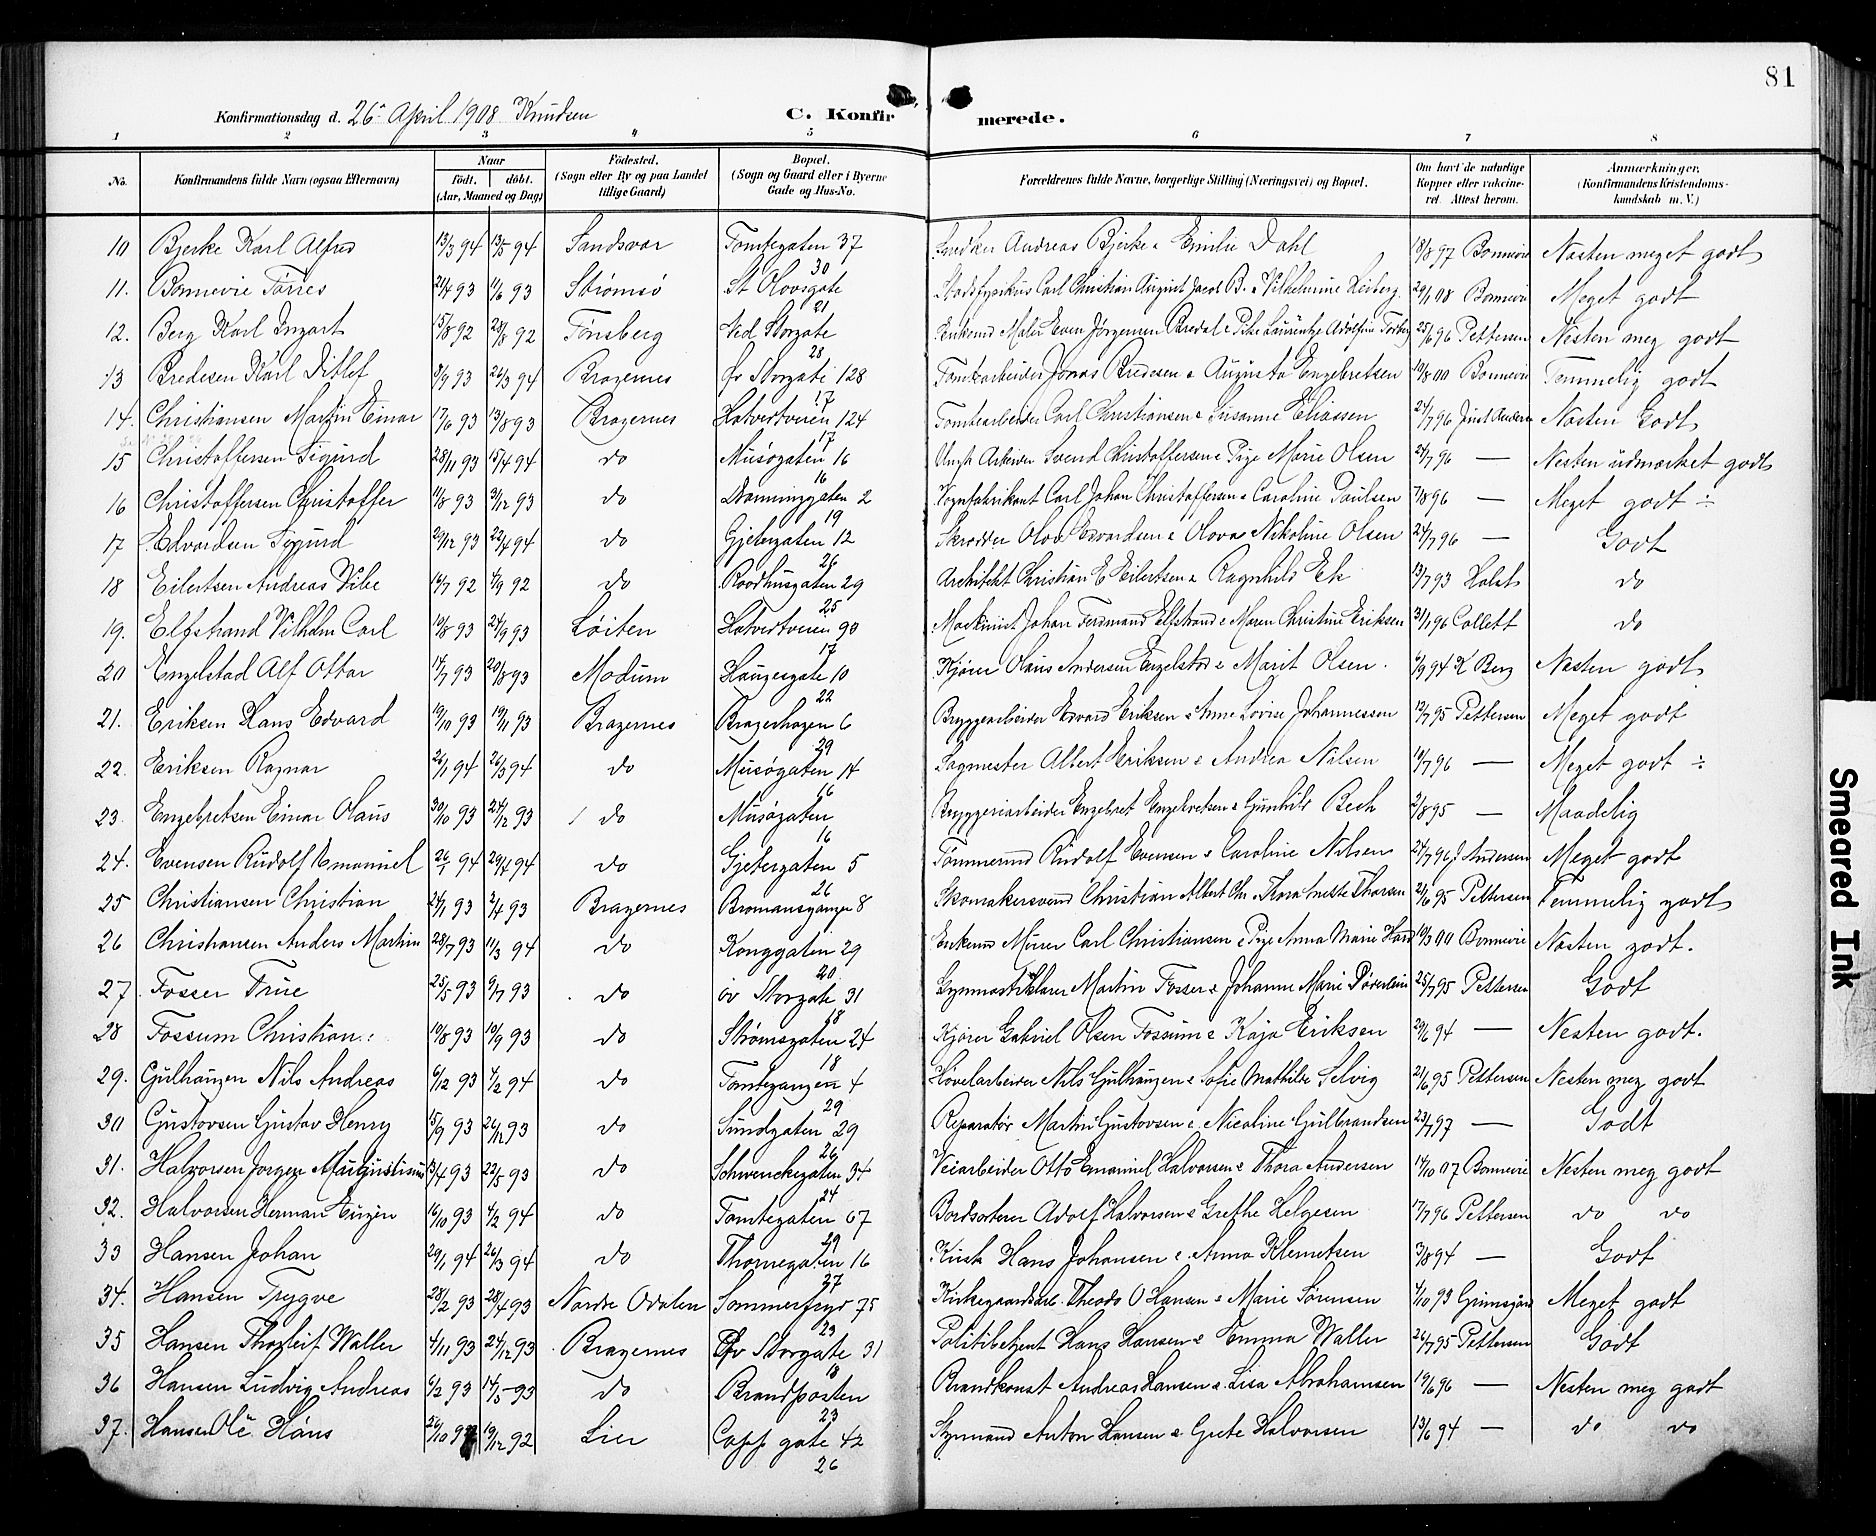 81
Konfirmationsdag d. 26 April 1908 Knudsen C. Konfirmerede.
1 2 3 4 5 6 7 8
No. Konfirmandens fulde Navn (ogsaa Efternavn) Naar födt. döbt. (Aar, Maaned og Dag) Födested. (Sogn eller By og paa Landet tillige Gaard) Bopæl. (Sogn og Gaard eller i Byerne Gade og Hus-No. Forældrenes fulde Navne, borgerlige Stilling (Næringsvei) og Bopæl. Om havt de naturlige Kopper eller vakcineret. Attest herom. Anmærkninger. (Konfirmandens Kristendomskundskab m. V.)
10 Bjerke Karl Alfred 13/3 94 13/5 94 Sandsvær Tomtegaten 37 Snedker Andreas Bjerke & Emilie Dahl 18/8 97 Bonnevie Nesten meget godt
30
11. Bonnevie Tørres 21/4 93 11/6 93 Strømsø St Olavsgate Stadsfysikus Carl Christian August Jacob B. & Vilhelmine 29/1 08 Bonnevie Meget godt
21
12. Berg Karl Ingart 15/8 92 28/8 92 Tønsberg Ned Storgate Enkemd Maler Even Jørgensen Bredal & Pike Laurentze Adolfine 25/6 96 Pettersen Nesten meg godt
28
13 Bredesen Karl Ditlef 8/9 93 26/3 94 Bragernes Øv Storgate 128 Tomtearbeider Jonas Bredesen & Augusta Engebretsen 10/8 00 Bonnevie Temmelig godt
17
14. Christiansen Martin Einar 17/6 93 13/8 93 Bragernes Hotvertveien 124 Tomtearbeider Carl Christiansen & Susanne Eliassen 24/7 96 Nesten Godt
17
15 Christoffersen Sigurd 28/11 93 15/4 94 do Musøgaten 16 Ungk Arbeider Svend Christoffersen & Pige Marie Olsen 24/7 96 — Nesten udmærket godt
16
16 Christoffersen Christoffer 11/8 93 31/12 93 do Dronninggaten 2 Vognfabrikant Carl Johan Christoffersen & Caroline Paulsen 7/8 96 — Meget godt ÷
19
17 Edvardsen Sigurd 20/12 93 22/4 94 do Gjetergaten 12 Skrædder Olov Edvardsen & Olova Nikoline Olsen 24/7 96 — Godt
26
18 Eilertsen Andreas Vibe 14/7 92 4/9 92 do Raadhusgaten 29 Architekt Christian E Eilertsen & Ragnhild Ek 13/7 93 Holst do
25
19. Elfstrand Vilhelm Carl 10/8 93 24/9 93 Løiten Hotvertveien 90 Maskinist Johan Ferdinand Elfstrand & Maren Christine Eriksen 31/1 96 Collett do
17
20 Engelstad Alf Ottar 14/7 93 20/8 93 Modum Haugesgate 10 Kjører Olaus Andersen Engelstad & Marit Olsen. 6/9 94 K Berg Nesten godt
22
21. Eriksen Hans Edvard 19/10 93 19/11 93 Bragernes Bragerhagen 6 Bryggearbeider Edvard Eriksen & Anne Lovise Johannessen 12/7 95 Pettersen Meget godt
29
22. Eriksen Ragnar 26/1 94 26/3 94 do Musøgaten 14 Sagmester Albert Eriksen & Andrea Nilsen 10/7 96 — Meget godt ÷
16
23. Engebretsen Einar Olaus 30/10 93 24/12 93 do Musøgaten Bryggeriarbeider Engebret Engebretsen & Gunhild Bech 2/8 95 — Maadelig
16
24. Evensen Rudolf Emanuel 26/1 94 29/4 94 do Gjetergaten 5 Tømmermd Rudolf Evensen & Caroline Nilsen 24/7 96 J. Andersen Meget godt
26
25 Christiansen Christian 24/1 93 3/4 93 Bragernes Bromansgangen 8 Skomakersvend Christian Albert Chr & Thora Thorsen 21/6 95 Pettersen Temmelig godt
26 Christiansen Anders Martin 28/7 93 11/3 94 do Konggaten 29 Enkemd Murer Carl Christiansen & Pige Anna Marie 10/3 00 Bonnevie Nesten godt.
20
27 Fosser True 25/5 93 9/7 93 do øv Storgate 31 Gymnastiklærer Martin Fosser & Johanne Marie 25/7 95 Pettersen Godt
18
28 Fossum Christian: 10/8 93 10/9 93 do Strømsgaten 24 Kjører Gabriel Olsen Fossum & Kaja Eriksen 29/6 94 — Nesten godt.
18
29. Gulhaugen Nils Andreas 6/12 93 4/2 94 do Tomtegangen 4 Høvelarbeider Nils Gulhaugen & Sofie Mathilde Selvig 21/6 95 Pettersen Nesten meg godt
29
30 Gustavsen Gustav Henry 15/9 93 26/12 93 do Sundgaten 29 Reparatør Martin Gustavsen & Nicoline Gulbrandsen 23/7 97 — Godt
26
31. Halvorsen Jørgen Augustinus 13/4 93 22/5 93 do Schwenckegaten 34 Veiarbeider Otto Emanuel Halvorsen & Thora Andersen 14/10 07 Bonnevie Nesten meg godt
24
32. Halvorsen Herman Eugen 16/10 93 4/2 94 do Tomtegaten 67 Bordsorterer Adolf Halvorsen & Grethe Helgesen 17/7 96 Pettersen do do
29
33 Hansen Johan 29/1 94 26/3 94 do Thornegaten 16 Kusk Hans Johansen & Anna Klemetsen 3/8 94 — Godt
37
34. Hansen Trygve 28/2 93 28/4 93 Nordre Odalen Sommerfryd 75 Kirkegaardsarb. Theodo O Hansen & Marie Sørensen 4/10 93 Grimsgård Meget godt
23
35 Hansen Thorleif Waller 4/11 93 24/12 93 Bragernes Øv Storgate 31 Politibetjent Hans Hansen & Emma Waller 26/7 95 Pettersen Godt
18
36 Hansen Ludvig Andreas 6/2 93 14/5 93 do Brandposten Brandkonst Andreas Hansen & Lisa Abrahamsen 19/6 96 — Nesten meg godt
23
37. Hansen Ole Hans 26/10 92 19/12 92 Lier Capp gate 42 Styrmand Anton Hansen & Grete Halvorsen 13/6 94 — do do
26
Smeared Ink